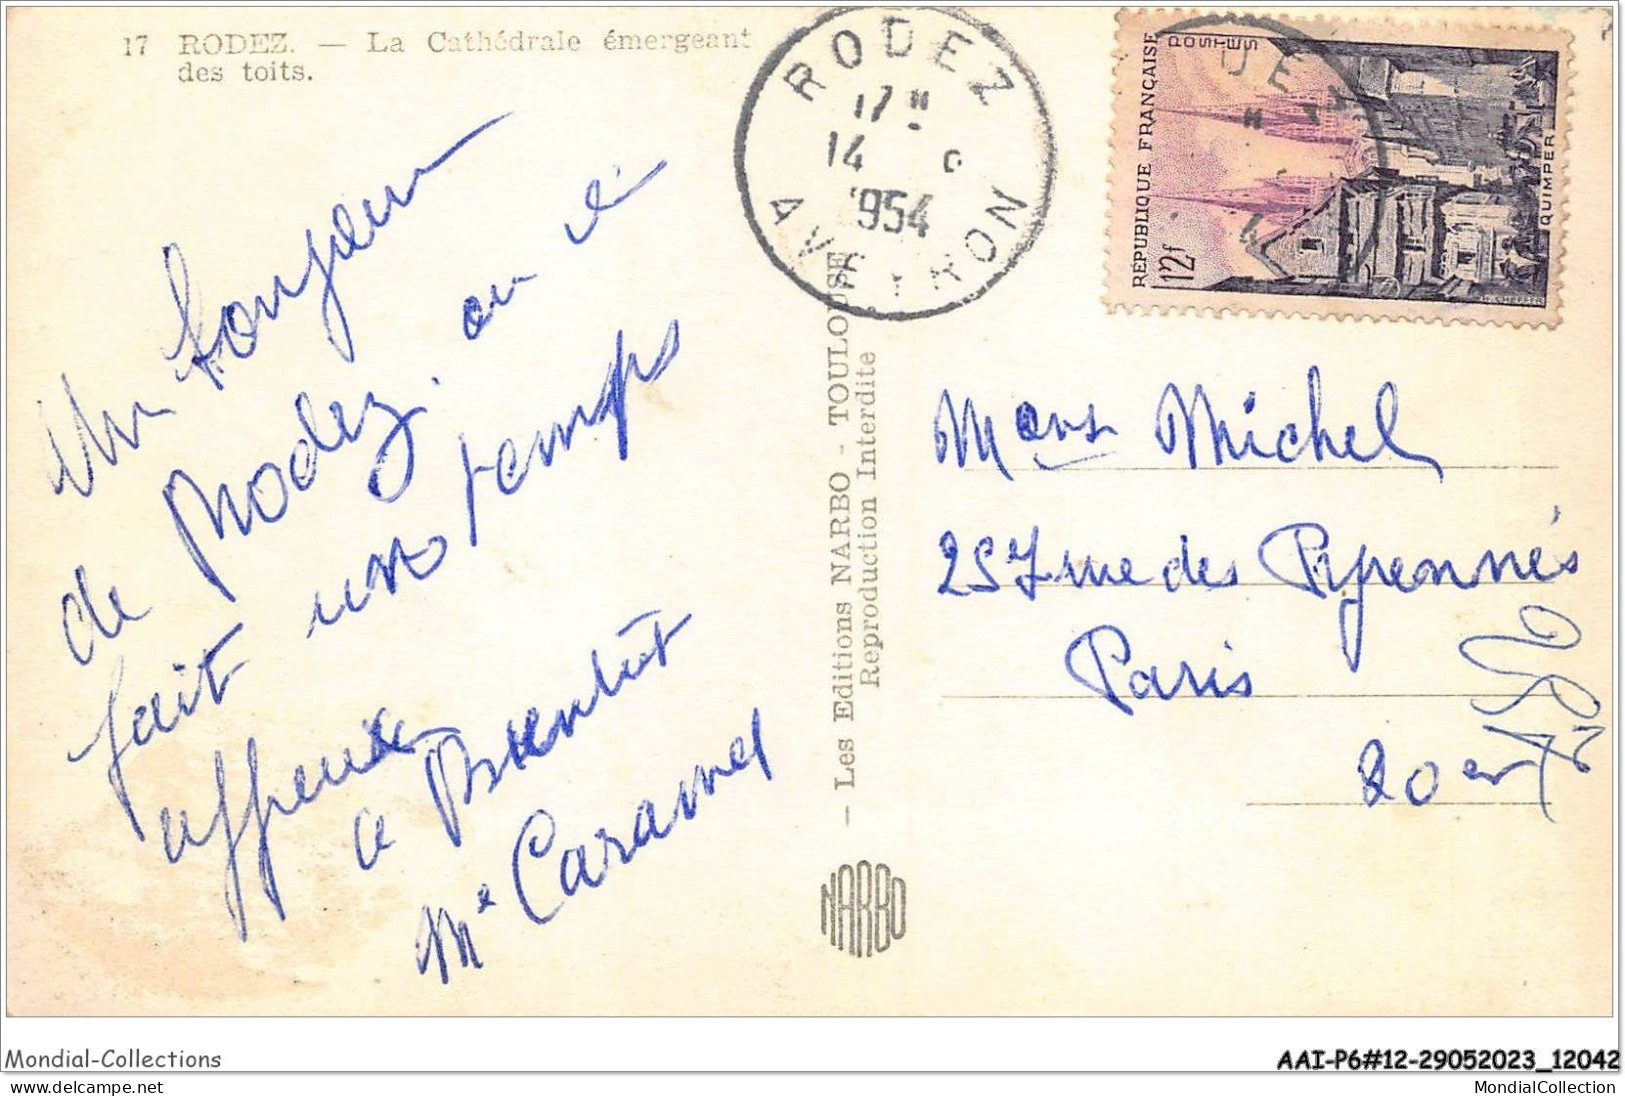 17 RODEZ. — La Cathédrale émergeant
des toits.
RODEZ
17H
14
1954
AVEYRON
RÉPUBLIQUE FRANÇAISE
POSTES
12f
QUIMPER
Un bonjour
de Rodez. ou il
fait un temps
affreux
a Bientôt
Me Caramel
— Les Editions NARBO - TOULOUSE
Reproduction Interdite
NARBO
Michel
257 rue des Pyrennés
Paris
20 em
Mondial-Collections
AAI-P6#12-29052023_12042
delcampe.net
MondialCollection